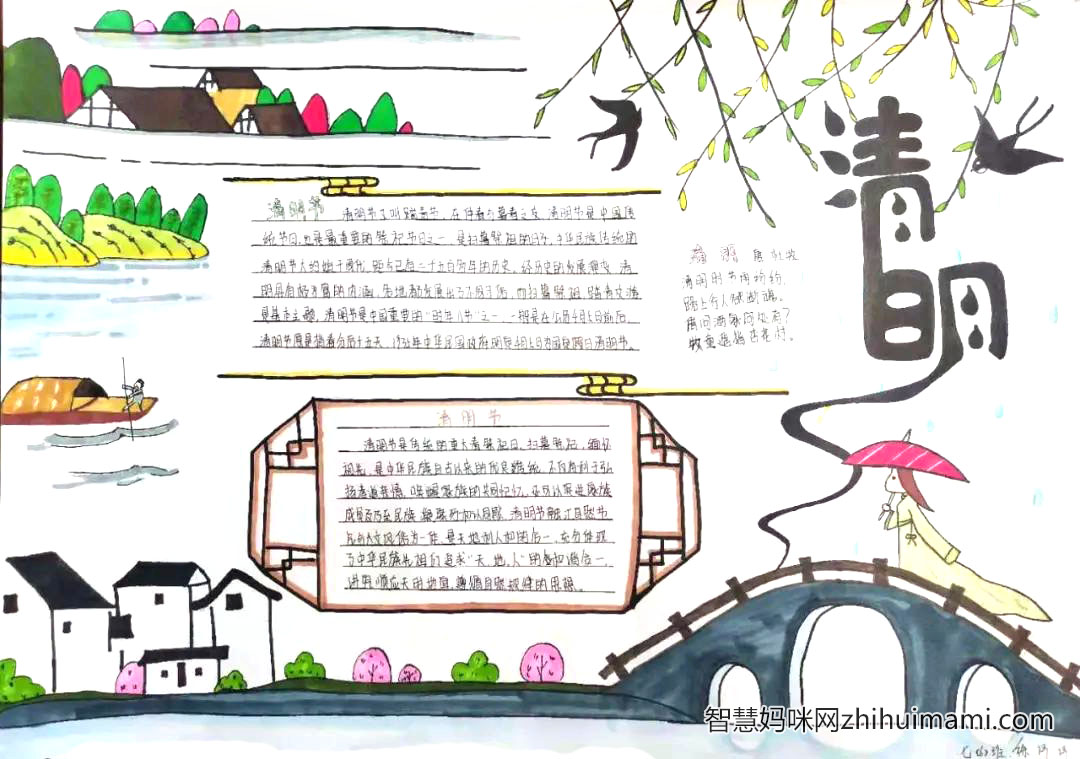 清明
清明节
清明节又叫踏青节，在仲春与暮春之交，清明节是中国传
统节日，也是最重要的祭祀节日之一，是扫墓祭祖的日子，中华民族传统的
清明节大约始于周代，距今已有二千五百多年的历史，经历史的发展演变，清
明具有极丰富的内涵，各地都发展出了不同习俗，而扫墓祭祖、踏青交游
是基本主题，清明节是中国重要的“时年八节”之一，一般是在公历4月5日前后，
清明节原是指春分后十五天，1935年中华民国政府明定4月5日为国定假日清明节。
清明 唐 杜牧
清明时节雨纷纷，
路上行人欲断魂。
借问酒家何处有？
牧童遥指杏花村。
清明节
清明节是传统的重大春祭节日，扫墓祭祀，缅怀
祖先，是中华民族自古以来的优良传统，不仅有利于弘
扬孝道亲情，唤醒家族的共同记忆，还可以促进家族
成员乃至民族凝聚力和认同感，清明节融汇自然节
气与人文风俗为一体，是天地人和的合一，充分体现
了中华民族先祖们追求“天、地、人”的和谐合一，
讲究顺应天时地宜，遵循自然规律的思想。
智慧妈咪网zhihuimami.com